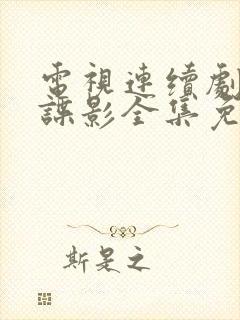 電視連續劇
諜影全集免
斯是之